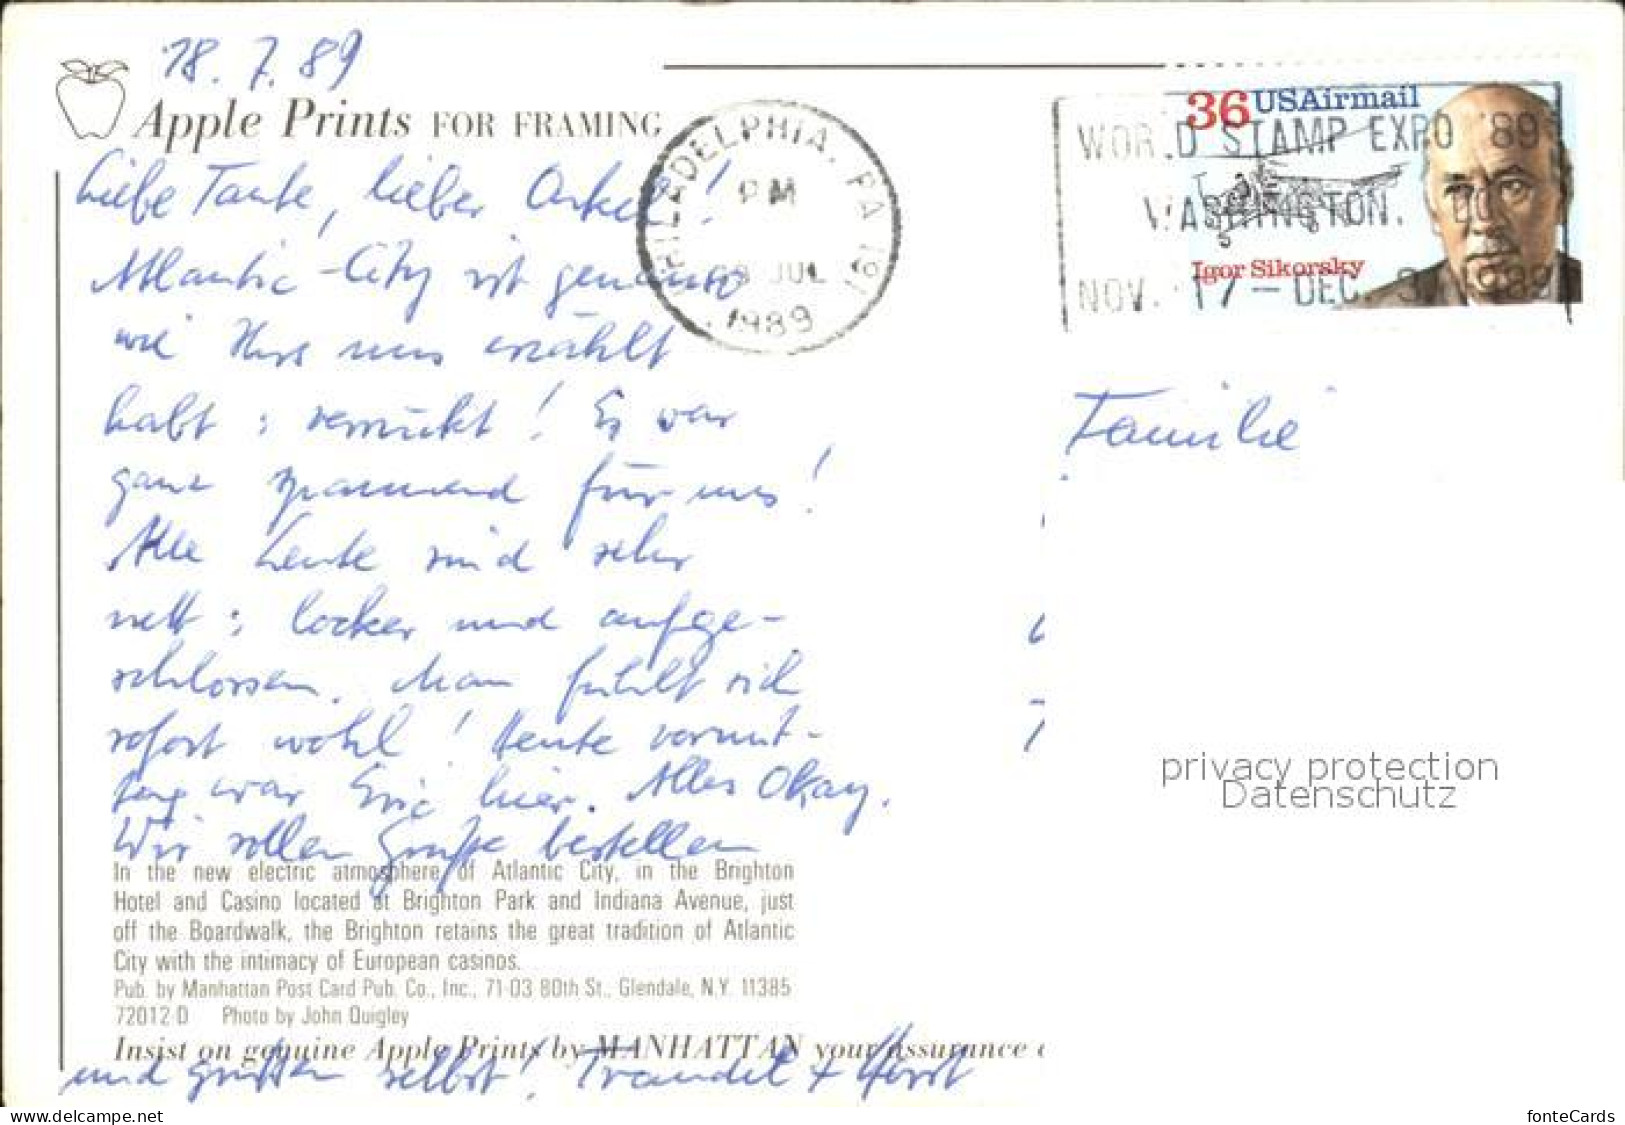 18. 7. 89
Apple Prints FOR FRAMING
Liebe Tante, lieber Onkel!
Atlantic-City ist genauso
wie Ihr's uns erzählt
habt: verrückt! Es war
ganz spannend für uns!
Alle Leute sind sehr
nett: locker und aufge-
schlossen. Man fühlt sich
sofort wohl! Heute vormit-
tag war Eric hier. Alles Okay.
Wir sollen Grüße bestellen
und grüßen selbst! Traudel + Horst
In the new electric atmosphere of Atlantic City, in the Brighton
Hotel and Casino located at Brighton Park and Indiana Avenue, just
off the Boardwalk, the Brighton retains the great tradition of Atlantic
City with the intimacy of European casinos.
Pub. by Manhattan Post Card Pub. Co., Inc., 71-03 80th St., Glendale, N.Y. 11385
72012-D Photo by John Quigley
Insist on genuine Apple Prints by MANHATTAN your assurance
PHILADELPHIA, PA 191
PM
JUL
1989
36 USAirmail
Igor Sikorsky
WORLD STAMP EXPO '89
WASHINGTON, DC
NOV. 17 - DEC. 3, 1989
Familie
privacy protection
Datenschutz
www.delcampe.net
fonteCards